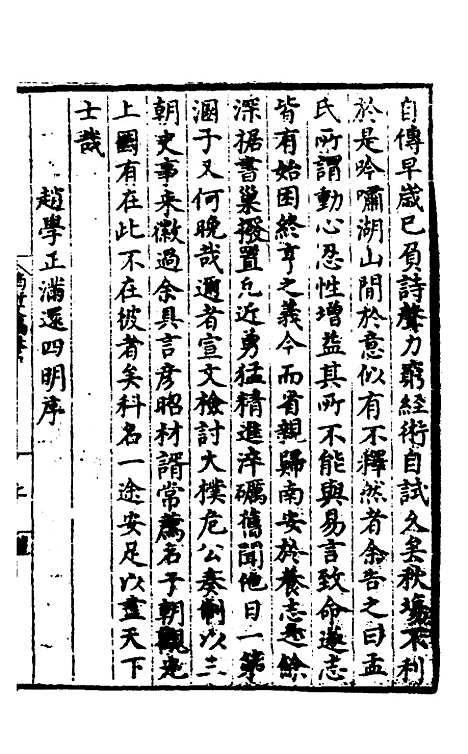 自傳早歲已負詩聲力窮經術自試久矣秋塲不利
於是吟嘯湖山間於意似有不釋然者余告之曰孟
氏所謂動心忍性增益其所不能與易言致命遂志
皆有始困終亨之義今而省親歸南安於養志之餘
深据書巢撥置凡近勇猛精進淬礪舊聞他日一第
溷子又何晚哉邇者宣文檢討大樸危公奏制以
朝史事来徽過余具言彦昭材諝常薦名于朝觀
上國有在此不在彼者矣科名一途安足以盡天下
士哉
趙學正滿還四明序